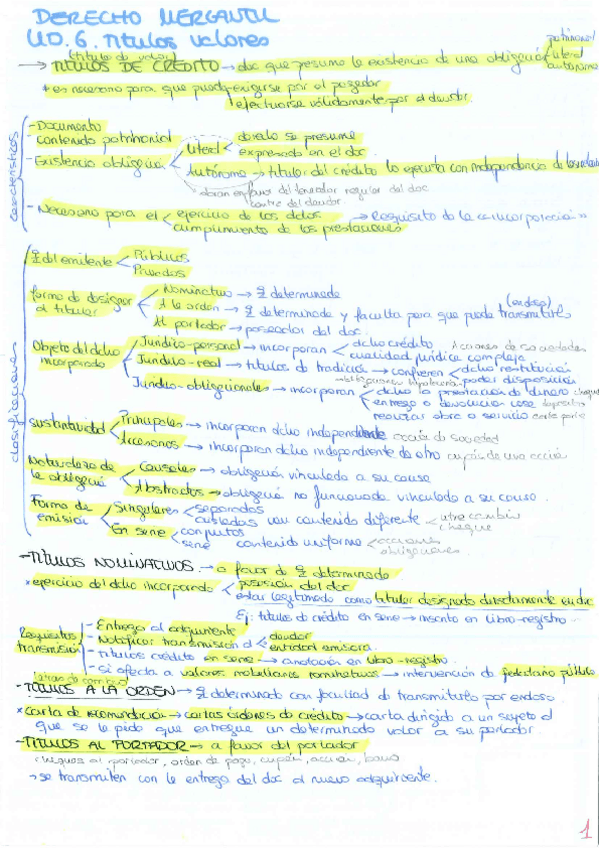 DERECHO MERCANTIL
UD. 6. Títulos valores
(títulos de valor)
→ TÍTULOS DE CRÉDITO → doc que presume la existencia de una obligación patrimonial literal autónoma
* es necesario para que pueda exigirse por el poseedor
efectuarse válidamente por el deudor.
características
- Documento
- contenido patrimonial
- Existencia obligación
literal
dcho lo se presume
expresado en el doc
Autónoma → titular del crédito lo ejecuta con independencia de
en favor del tenedor regular del doc
contra del deudor.
- Necesario para el
ejercicio de los dchos
cumplimiento de las prestaciones
→ Requisito de la "incorporación"
clasificaciones
del emitente
Públicos
Privados
forma de designar al titular
Nominativo → determinada
A la orden → determinada y faculta para que pueda transmitirlo (endoso)
Al portador → poseedor del doc.
Objeto del dcho incorporado
Jurídico-personal → incorporan
dcho crédito
cualidad jurídica compleja
Acciones de sociedades
Jurídico-real → títulos de tradición → confieren
dcho restitución
poder disposición
Jurídico-obligacionales → incorporan
dcho la prestación de dinero cheque
entrega o devolución cosa depósitos
realizar obra o servicio carta porte
sustantividad
Principales → incorporan dcho independiente acción de sociedad
Accesorios → incorporan dcho independiente de otro cupón de una acción
Naturaleza de la obligación
Causales → obligación vinculada a su causa
Abstractos → obligación no funcionada vinculado a su causa.
Forma de emisión
Singulares
separados
aislados con contenido diferente
letra cambio
cheque
En serie
conjuntos
serie
contenido uniforme
acciones
obligaciones.
- TÍTULOS NOMINATIVOS → a favor de determinada.
* ejercicio del dcho incorporado
posesión del doc
estar legitimado como titular designado directamente en doc
Ej: títulos de crédito en serie → inscrito en libro-registro-
Requisitos transmisión
- Entrega al adquirente
- Notificar transmisión a
deudor
entidad emisora.
- títulos crédito en serie → anotación en libro-registro
- Si afecta a valores mobiliarios nominativos → intervención de fedatario público
(letras de cambio)
- TÍTULOS A LA ORDEN → determinado con facultad de transmitirlo por endoso
* carta de recomendación → cartas órdenes de crédito → carta dirigida a un sujeto al
que se le pide que entregue un determinado valor a su portador.
- TÍTULOS AL PORTADOR → a favor del portador
cheques al portador, orden de pago, cupón, acción, bono
→ se transmiten con la entrega del doc al nuevo adquirente.
1